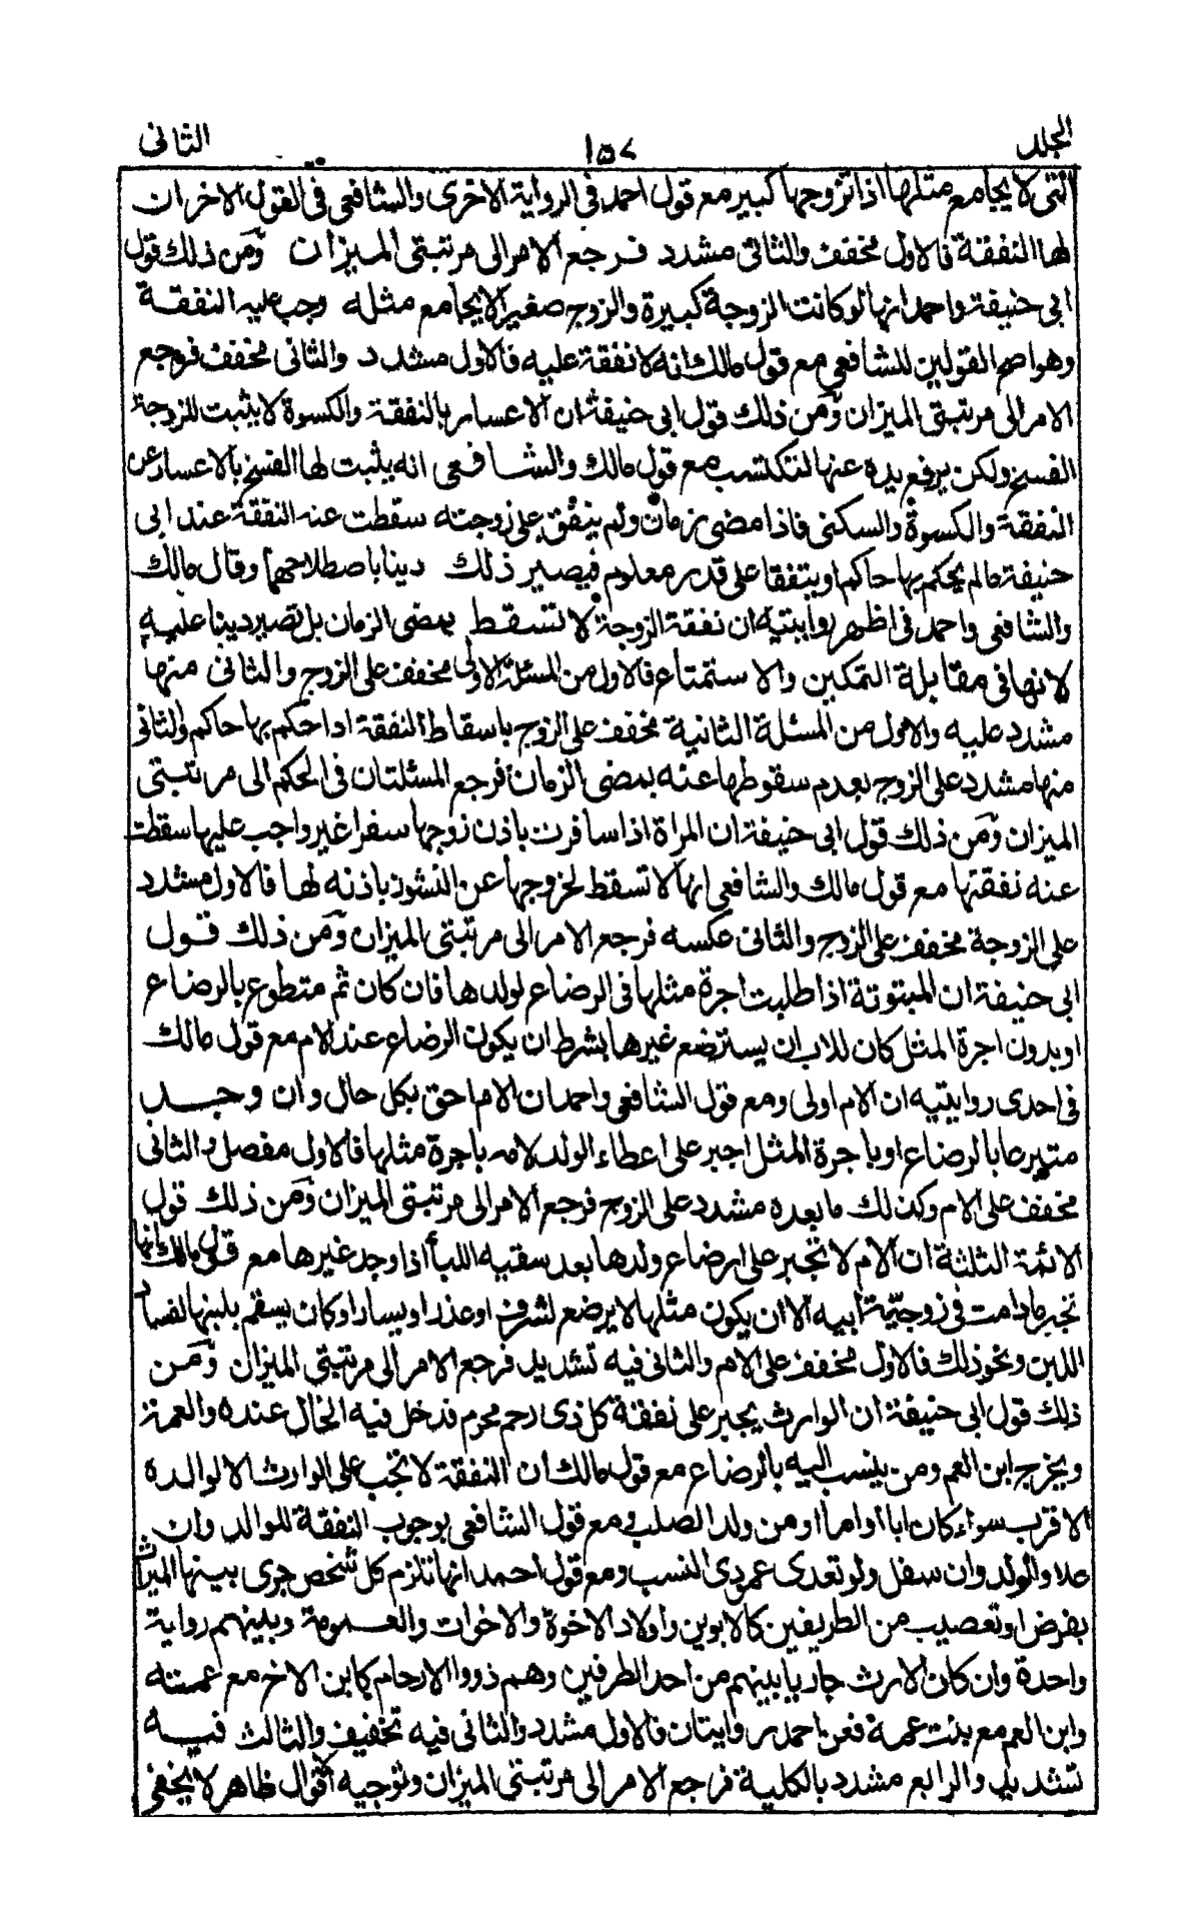 المجلد
١٥٧
الثانى
التى لا يجامع مثلها اذا تزوجها كبير مع قول احمد فى الرواية الاخرى والشافعى فى القول الاخر ان
لها النفقة فالاول مخفف والثانى مشدد فرجع الامر الى مرتبتى الميزان ومن ذلك قول
ابى حنيفة واحمد انها لو كانت الزوجة كبيرة والزوج صغير الا يجامع مثله وجب عليه النفقة
وهو اصح القولين للشافعى مع قول مالك انه لا نفقة عليه فالاول مشدد والثانى مخفف فرجع
الامر الى مرتبتى الميزان ومن ذلك قول ابى حنيفة ان الاعسار بالنفقة والكسوة لا يثبت للزوجة
الفسخ ولكن يرفع يده عنها لتكتسب مع قول مالك والشافعى انه يثبت لها الفسخ بالاعسار عن
النفقة والكسوة والسكنى فاذا مضى زمان ولم ينفق على زوجته سقطت عنه النفقة عند ابى
حنيفة مالم يحكم بها حاكم او يتفقا على قدر معلوم فيصير ذلك دينا باصطلاحهما وقال مالك
والشافعى واحمد فى اظهر روايتيه ان نفقة الزوجة لا تسقط بمضى الزمان بل تصير دينا عليه
لانها فى مقابلة التمكين والاستمتاع فالاول من المسئلة الاولى مخفف على الزوج والثانى منها
مشدد عليه والاول من المسئلة الثانية مخفف على الزوج باسقاط النفقة اذا حكم بها حاكم والثانى
منها مشدد على الزوج بعدم سقوطها عنه بمضى الزمان فرجع المسئلتان فى الحكم الى مرتبتى
الميزان ومن ذلك قول ابى حنيفة ان المراة اذا سافرت باذن زوجها سفرا غير واجب عليها سقطت
عنه نفقتها مع قول مالك والشافعى انها لا تسقط لخروجها عن النشوز باذنه لها فالاول مشدد
على الزوجة مخفف على الزوج والثانى عكسه فرجع الامر الى مرتبتى الميزان ومن ذلك قول
ابى حنيفة ان المبتوتة اذا طلبت اجرة مثلها فى الرضاع لولدها فان كان ثم متطوع بالرضاع
او بدون اجرة المثل كان للاب ان يسترضع غيرها بشرط ان يكون الرضاع عند الام مع قول مالك
فى احدى روايتيه ان الام اولى ومع قول الشافعى واحمد ان الام احق بكل حال وان وجد
متبرعا بالرضاع او باجرة المثل اجبر على اعطاء الولد لامه باجرة مثلها فالاول مفصل والثانى
مخفف على الام وكذلك ما بعده مشدد على الزوج فرجع الامر الى مرتبتى الميزان ومن ذلك قول
الائمة الثلثة ان الام لا تجبر على ارضاع ولدها بعد سقيه اللبأ اذا وجد غيرها مع قول مالك انها
تجبر ما دامت فى زوجيّة ابيه الا ان يكون مثلها لا يرضع لشرف او عذر او يسار او كان يسقم بلبنها لفساد
اللبن ونحو ذلك فالاول مخفف على الام والثانى فيه تشديد فرجع الامر الى مرتبتى الميزان ومن
ذلك قول ابى حنيفة ان الوارث يجبر على نفقة كل ذى رحم محرم فدخل فيه الخال عنده والعمة
ويخرج ابن العم ومن ينسب اليه بالرضاع مع قول مالك ان النفقة لا تجب على الوارث الا لوالده
الاقرب سواء كان ابا او اما او من ولد الصلب ومع قول الشافعى بوجوب النفقة للوالد وان
علا والولد وان سفل ولو تعدى عمودى النسب ومع قول احمد انها تلزم كل شخص جرى بينهما الميراث
بفرض او تعصيب من الطريفين كالابوين واولاد الاخوة والاخوات والعمومة وبنيهم رواية
واحدة وان كان الارث جاريا بينهم من احد الطرفين وهم ذووا الارحام كابن الاخ مع عمته
وابن العم مع بنت عمه فعن احمد روايتان فالاول مشدد والثانى فيه تخفيف والثالث فيه
تشديد والرابع مشدد بالكلية فرجع الامر الى مرتبتى الميزان وتوجيه الاقوال ظاهر لا يخفى